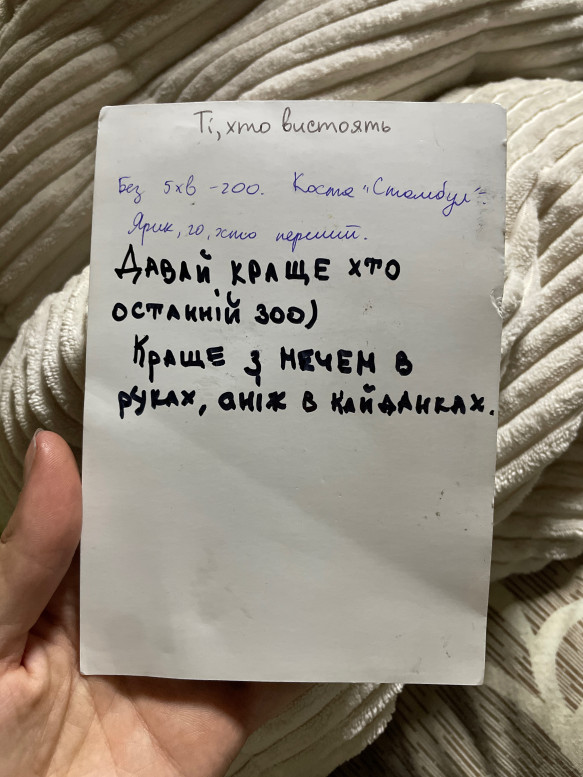 Ті, хто вистоять
Без 5хв -200. Коста "Стамбул".
Ярик, го, хто перший.
ДАВАЙ КРАЩЕ ХТО
ОСТАННІЙ 300)
КРАЩЕ З МЕЧЕМ В
РУКАХ, АНІЖ В КАЙДАНКАХ.